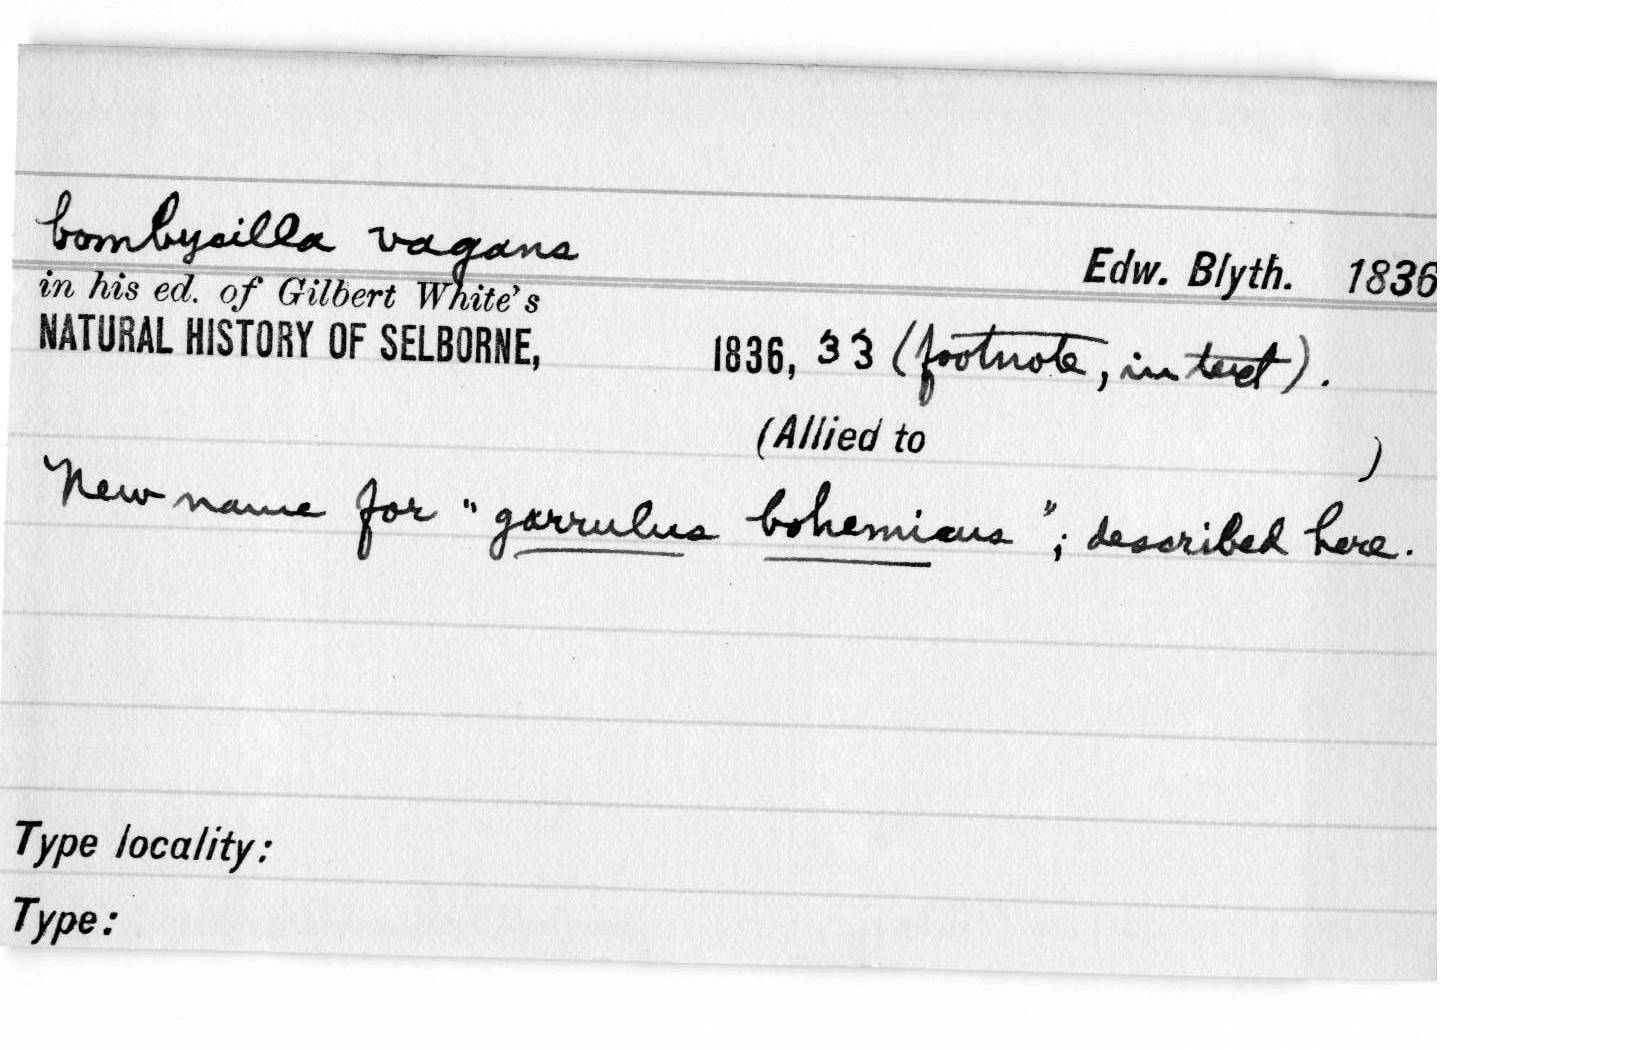 bombycilla vagans
Edw. Blyth. 1836
in his ed. of Gilbert White's
NATURAL HISTORY OF SELBORNE, 1836, 33 (footnote, in text).
(Allied to )
New name for "garrulus bohemicus"; described here.
Type locality:
Type: